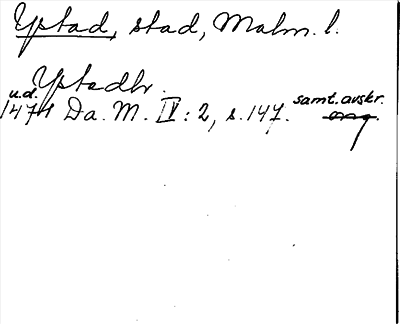 Ystad, stad, Malm. l.
Ystedhr.
u.d. samt. avskr.
1474 Da. M. IV: 2, s. 147. orig.